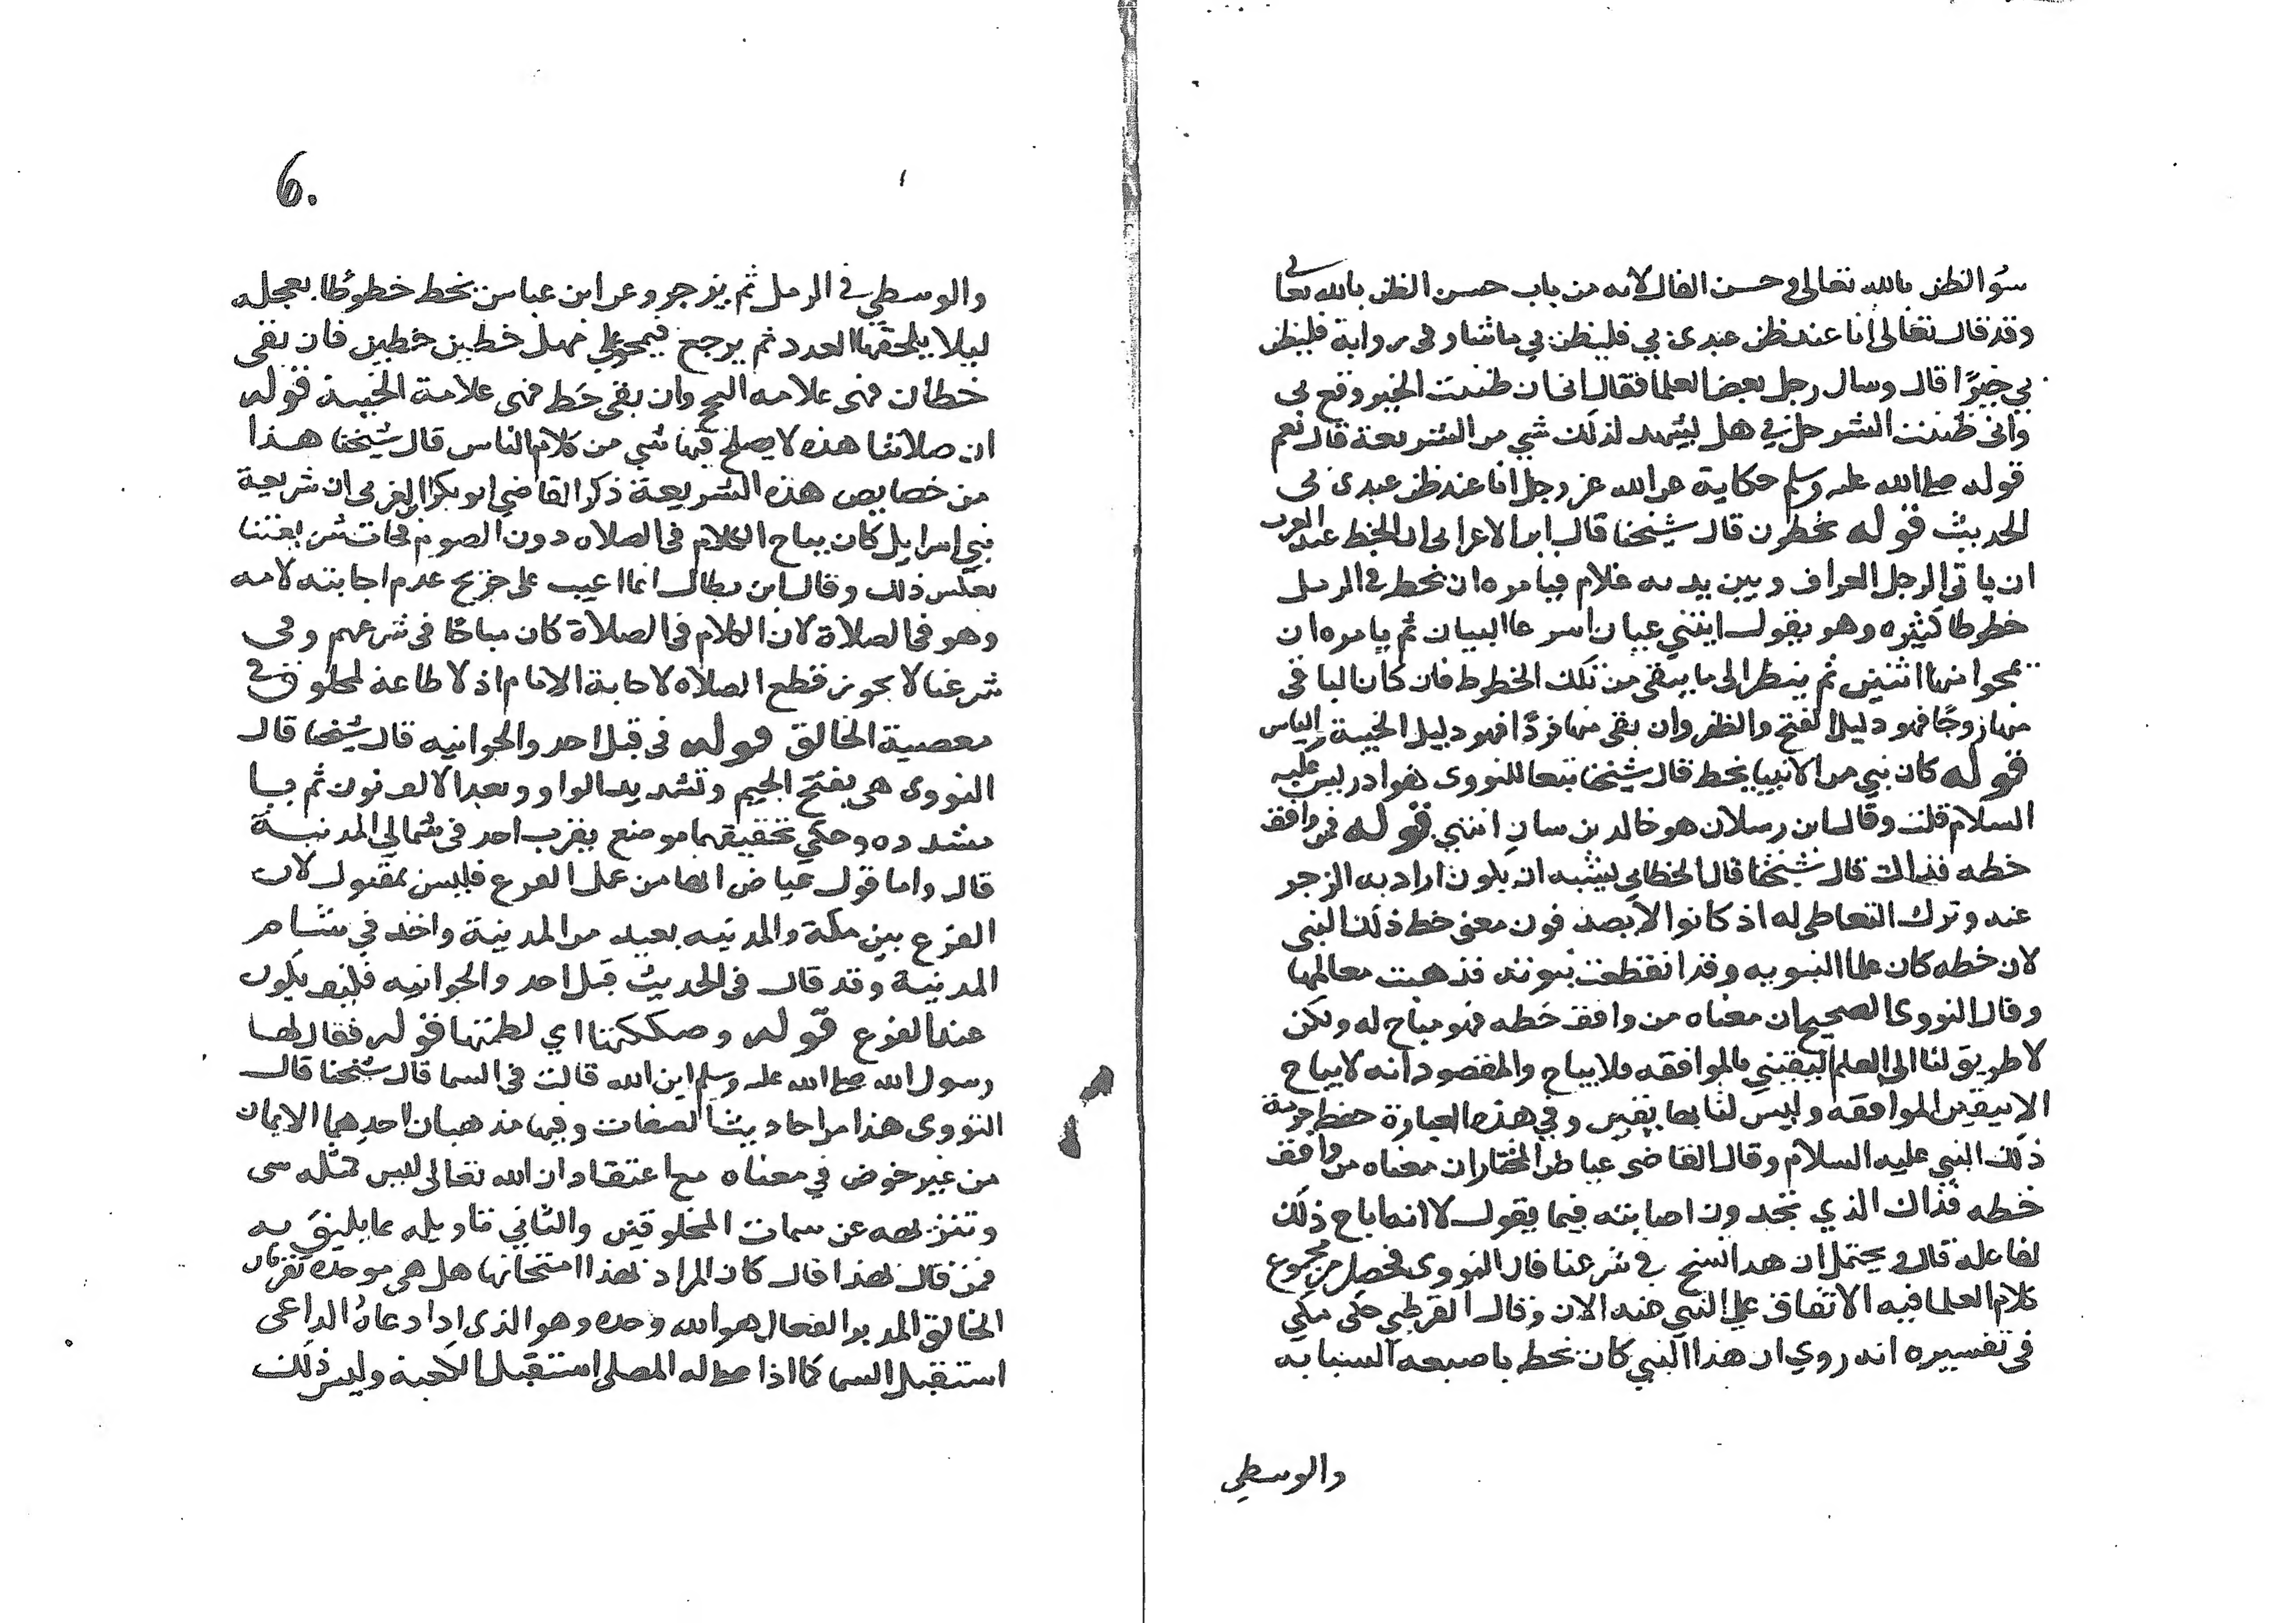 سؤ الظن بالله تعالى في حسن الفال لانه من باب حسن الظن بالله تعا لى
وقد قال تعالى انا عند ظن عبدي بي فليظن بي ما شا وفى رواية فليظن
بي خيرًا قال وسال رجل بعض العلما فقال انى ان ظننت الخير وقع لى
وانى ظننت الشر حل بي هل يشهد لذلك شي من الشريعة قال نعم
قوله صلى الله عليه وسلم حكاية عن الله عز وجل انا عند ظن عبدى بى
الحديث قوله يخطون قال شيخنا قال ابن الاعرابى الخط عند العرب
ان ياتي الرجل العراف وبين يديه غلام فيامره ان يخط في الرمل
خطوطا كثيره وهو يقول ابنتي عيان اسرعا البيان ثم يامره ان
يمحوا منها اثنين ثم ينظر الى ما يبقى من تلك الخطوط فان كان الباقى
منها زوجًا فهو دليل الفتح والظفر وان بقى منها فردًا فهو دليل الخيبة والياس
قوله كان نبي من الانبيا يخط قال شيخنا تبعا للنووى هو ادريس عليه
السلام قلت وقال ابن رسلان هو خالد بن سنان انتهي قوله فمن وافق
خطه فذاك قال شيخنا قال الخطابي يشبه ان يكون اراد به الزجر
عنه وترك التعاطى له اذ كانوا لا يصدفون معنى خط ذلك النبى
لان خطه كان علما لنبوته وقد انقطعت نبوته فذهبت معالمها
وقال النووى الصحيح ان معناه من وافق خطه فهو مباح له ولكن
لا طريق لنا الى العلم اليقيني بالموافقه فلا يباح والمقصود انه لا يباح
الا بيقين الموافقه وليس لنا بها يقين وفي هذه العبارة حفظ حرمة
ذلك النبي عليه السلام وقال القاضى عياض المختار ان معناه من وافق
خطه فذاك الذي تجدون اصابته فيما يقول لا انه اباح ذلك
لفاعله قال ويحتمل ان هذا نسخ في شرعنا قال النووى فحصل من مجموع
كلام العلما فيه الاتفاق على النهي عنه الان وقال القرطبي حكى مكي
فى تفسيره انه روي ان هذا النبي كان يخط باصبعه السبابه
والوسطي
6.
والوسطي في الرمل ثم يزجر وعن ابن عباس يخط خطوطا بعجله
ليلا يلحقها العدد ثم يرجع فيمحو على مهل خطين خطين فان بقى
خطان فهى علامه النجح وان بقى خط فهى علامة الخيبة قوله
ان صلاتنا هذه لا يصلح فيها شي من كلام الناس قال شيخنا هذا
من خصايص هذه الشريعة ذكر القاضي ابو بكر ابن العربى ان شريعة
بني اسرايل كان يباح الكلام فى الصلاه دون الصوم فجات شريعتنا
بعكس ذلك وقال ابن بطال انما اعيب على جريج عدم اجابته لامه
وهو فى الصلاة لان الكلام فى الصلاة كان مباحًا فى شرعهم وفى
شرعنا لا يجوز قطع الصلاه لاجابة الام اذ لا طاعة لمخلوق في
معصية الخالق قوله فى قبل احد والجوانيه قال شيخنا قال
النووى هى بفتح الجيم وتشديد الواو وبعد الالف نون ثم يا
مشدده وحكي تخفيفها موضع بقرب احد فى شمالي المدينة
قال واما قول عياض انها من عمل الفرع فليس بمقبول لان
الفرع بين مكة والمدينه بعيد من المدينة واخذ في شام
المدينة وقد قال فى الحديث قبل احد والجوانيه فكيف يكون
عند الفرع قوله وصككتها اي لطمتها قوله فقال لها
رسول الله صلى الله عليه وسلم اين الله قالت فى السما قال شيخنا قال
النووى هذا من احاديث الصفات وفيها مذهبان احدهما الايمان
من غير خوض في معناه مع اعتقاد ان الله تعالى ليس كمثله شى
وتنزيهه عن سمات المخلوقين والثاني تاويله بما يليق به
فمن قال بهذا قال كان المراد بهذا امتحانها هل هى موحده تقر بان
الخالق المدبر الفعال هو الله وحده وهو الذى اذا دعاهُ الداعى
استقبل السما كما اذا صلى له المصلى استقبل الكعبة وليس ذلك